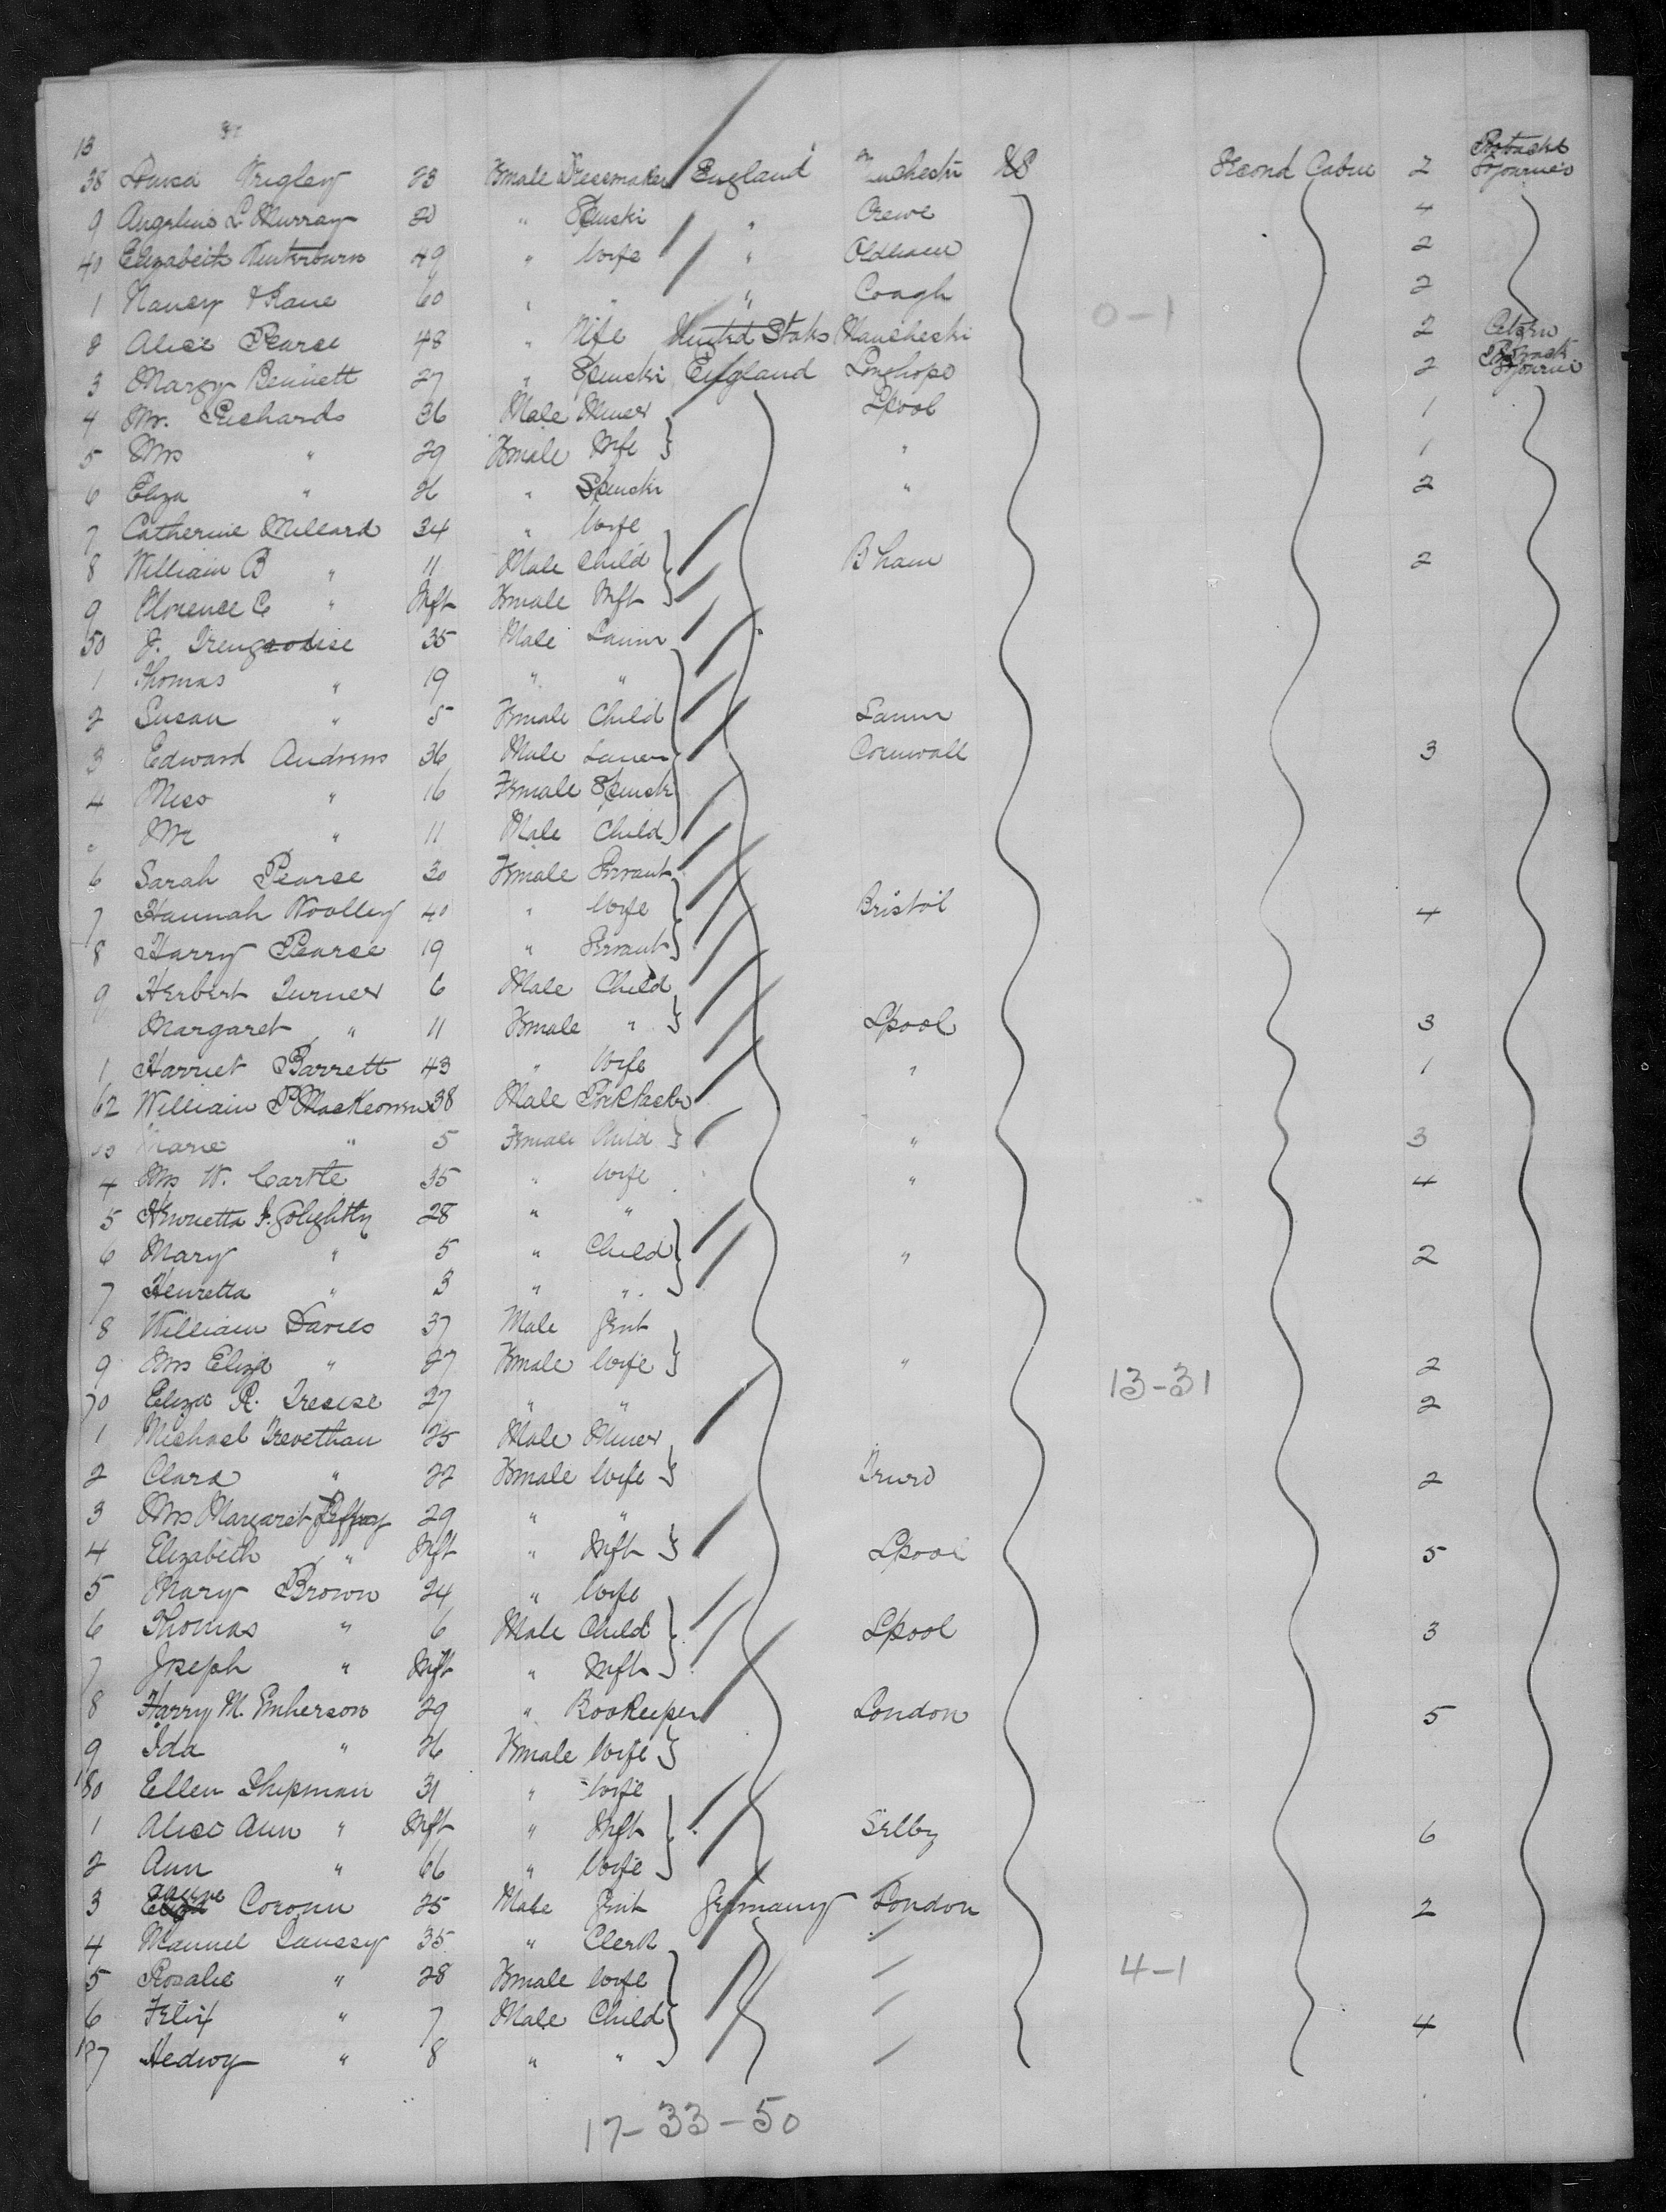 13
38 Louisa Wrigley 23 Female Dressmaker England Manchester US Second Cabin 2 Protracted Sojourn
9 Angelina L Murray 20 " Spinster " Crewe 4
40 Elizabeth Winterburn 49 " Wife " Oldham 2
1 Nancy 60 " " " Coagh 0-1 2
2 Alice Pearce 48 " Wife United States Manchester 2 Citizen
3 Mary Bennett 27 " Spinster England Longhope 2
4 Mr. Richards 36 Male Miner Lpool 1
5 Mrs " 29 Female Wife " 1
6 Eliza " 26 " Spinster " 2
7 Catherine Millard 34 " Wife
8 William B " 11 Male Child B'ham 2
9 Florence C " Inft Female Inft
50 J. 35 Male
1 Thomas " 19 " "
2 Susan " 5 Female Child
3 Edward Andrews 36 Male Cornwall 3
4 Miss " 16 Female Spinster
Mr " 11 Male Child
6 Sarah Pearce 30 Female Servant
7 Hannah Woolley 40 " Wife Bristol 4
8 Harry Pearce 19 " Servant
9 Herbert Turner 6 Male Child
Margaret " 11 Female " Lpool 3
1 Harriet Barrett 43 " Wife " 1
62 William P Mackeown 38 Male Porkpacker
Marie " 5 Female Child " 3
4 Mrs W. Cartte 35 " Wife " 4
5 Henrietta J. Golightly 28 " "
6 Mary " 5 " Child " 2
7 Henretta " 3 " "
8 William Davies 37 Male Gent
9 Mrs Eliza " 27 Female Wife " 2
70 Eliza R. Tresise 27 " " 13-31 2
1 Michael Trevethan 25 Male Miner
2 Clara " 22 Female Wife Truro 2
3 Mrs Margaret Jeffrey 29 " "
4 Elizabeth " Inft " Inft Lpool 5
5 Mary Brown 24 " Wife
6 Thomas " 6 Male Child Lpool 3
7 Joseph " Inft " Inft
8 Harry M. Emherson 29 " Bookeeper London 5
9 Ida " 26 Female Wife
180 Ellen Shipman 31 " Wife
1 Alice Ann " Inft " Inft Selby 6
2 Ann " 66 " Wife
3 Coronn 25 Male Gent Germany London 2
4 Manuel Laussy 35 " Clerk
5 Rosalie " 28 Female Wife 4-1
6 Felix " 7 Male Child 4
187 Hedwy " 8 " "
17-33-50